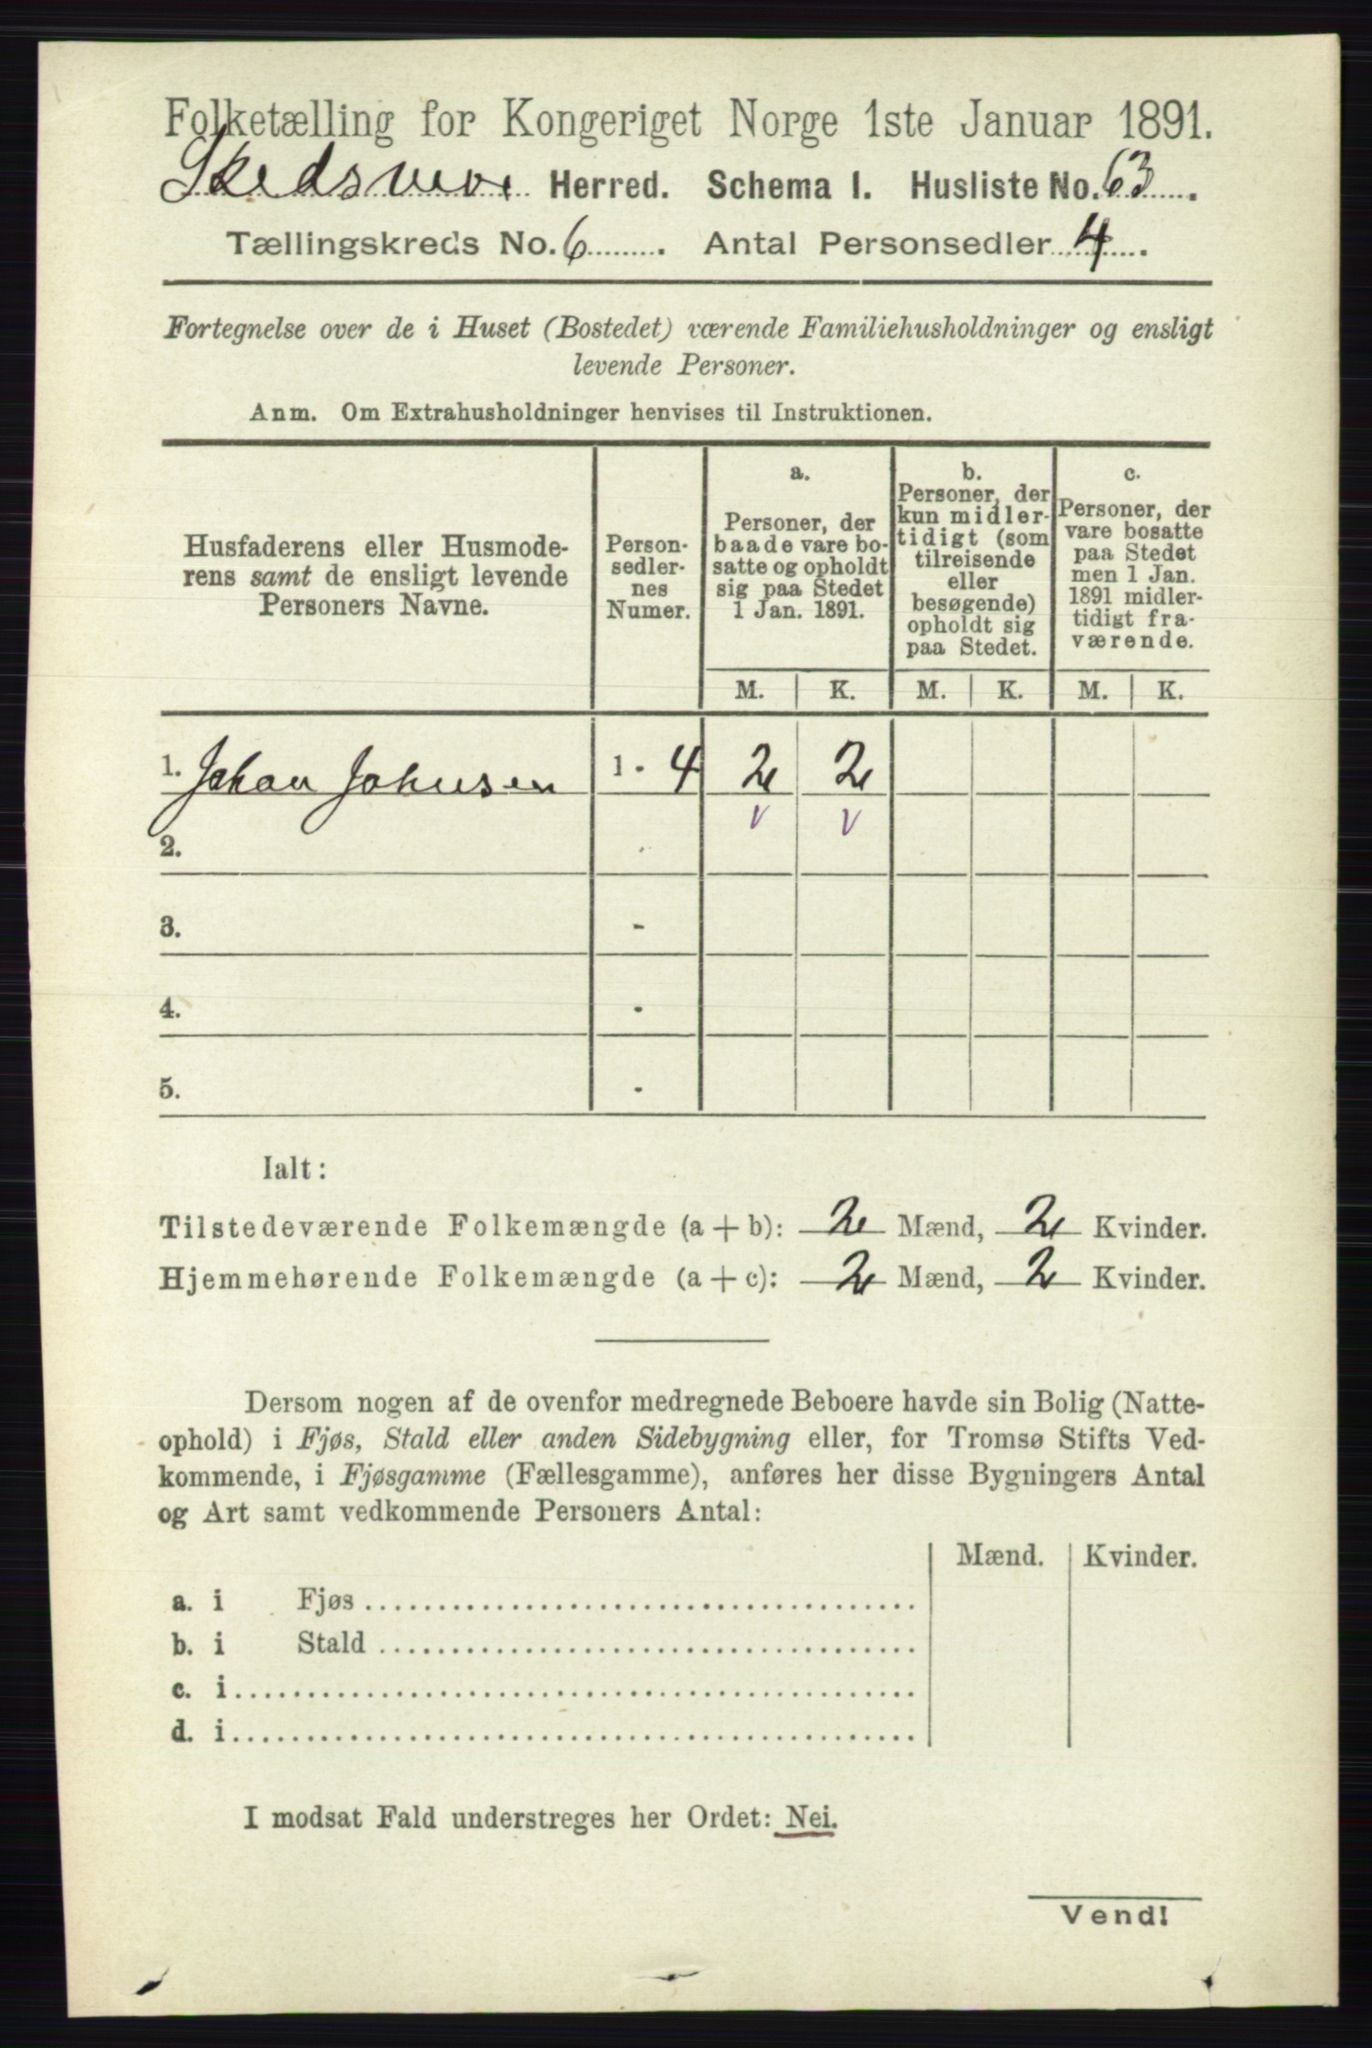 Folketælling for Kongeriget Norge 1ste Januar 1891.
Skedsmoe Herred. Schema I. Husliste No. 63.
Tællingskreds No. 6. Antal Personsedler 4.
Fortegnelse over de i Huset (Bostedet) værende Familiehusholdninger og ensligt
levende Personer.
Anm. Om Extrahusholdninger henvises til Instruktionen.
Husfaderens eller Husmode-
rens samt de ensligt levende
Personers Navne.
Person-
sedler-
nes
Numer.
a.
Personer, der
baade vare bo-
satte og opholdt
sig paa Stedet
1 Jan. 1891.
b.
Personer, der
kun midler-
tidigt (som
tilreisende
eller
besøgende)
opholdt sig
paa Stedet.
c.
Personer, der
vare bosatte
paa Stedet
men 1 Jan.
1891 midler-
tidigt fra-
værende.
M. K. M. K. M. K.
1. Johan Johnsen 1 - 4 2 2
v v
2. -
3. -
4. -
5. -
Ialt:
Tilstedeværende Folkemængde (a + b): 2 Mænd, 2 Kvinder.
Hjemmehørende Folkemængde (a + c): 2 Mænd, 2 Kvinder.
Dersom nogen af de ovenfor medregnede Beboere havde sin Bolig (Natte-
ophold) i Fjøs, Stald eller anden Sidebygning eller, for Tromsø Stifts Ved-
kommende, i Fjøsgamme (Fællesgamme), anføres her disse Bygningers Antal
og Art samt vedkommende Personers Antal:
Mænd. Kvinder.
a. i Fjøs
b. i Stald
c. i
d. i
I modsat Fald understreges her Ordet: Nei.
Vend!